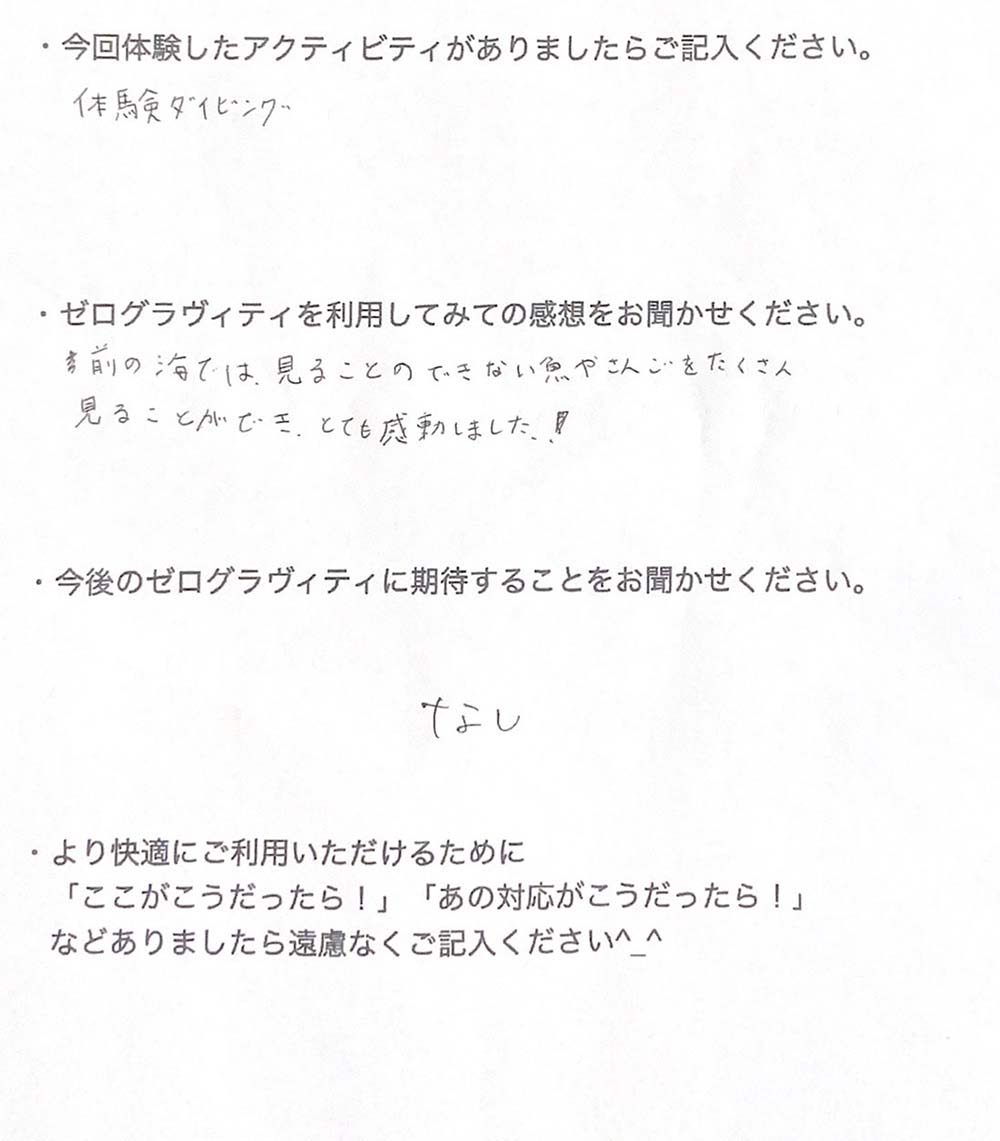 ・今回体験したアクティビティがありましたらご記入ください。
体験ダイビング
・ゼログラヴィティを利用してみての感想をお聞かせください。
前の海では、見ることのできない魚やさんごをたくさん
見ることができ、とても感動しました!!
・今後のゼログラヴィティに期待することをお聞かせください。
なし
・より快適にご利用いただけるために
「ここがこうだったら！」「あの対応がこうだったら！」
などありましたら遠慮なくご記入ください^_^